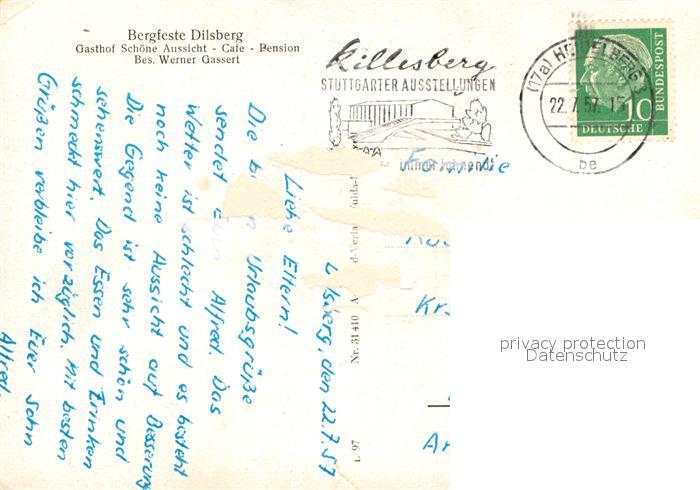 Bergfeste Dilsberg
Gasthof Schöne Aussicht - Cafe - Pension
Bes. Werner Gassert
Killesberg
STUTTGARTER AUSSTELLUNGEN
immer lohnend!
(17a) HEIDELBERG 3
22.7.57
be
10
DEUTSCHE
BUNDESPOST
Familie
Kr
Ar
Nr. 31410 A
privacy protection
Datenschutz
den 22.7.57
Liebe Eltern!
Die Urlaubsgrüße
sendet Alfred. Das
Wetter ist schlecht und es besteht
noch keine Aussicht auf Besserung
Die Gegend ist sehr schön und
sehenswert. Das Essen und Trinken
schmeckt hier vorzüglich. Mit besten
Grüßen verbleibe ich Euer Sohn
Alfred.